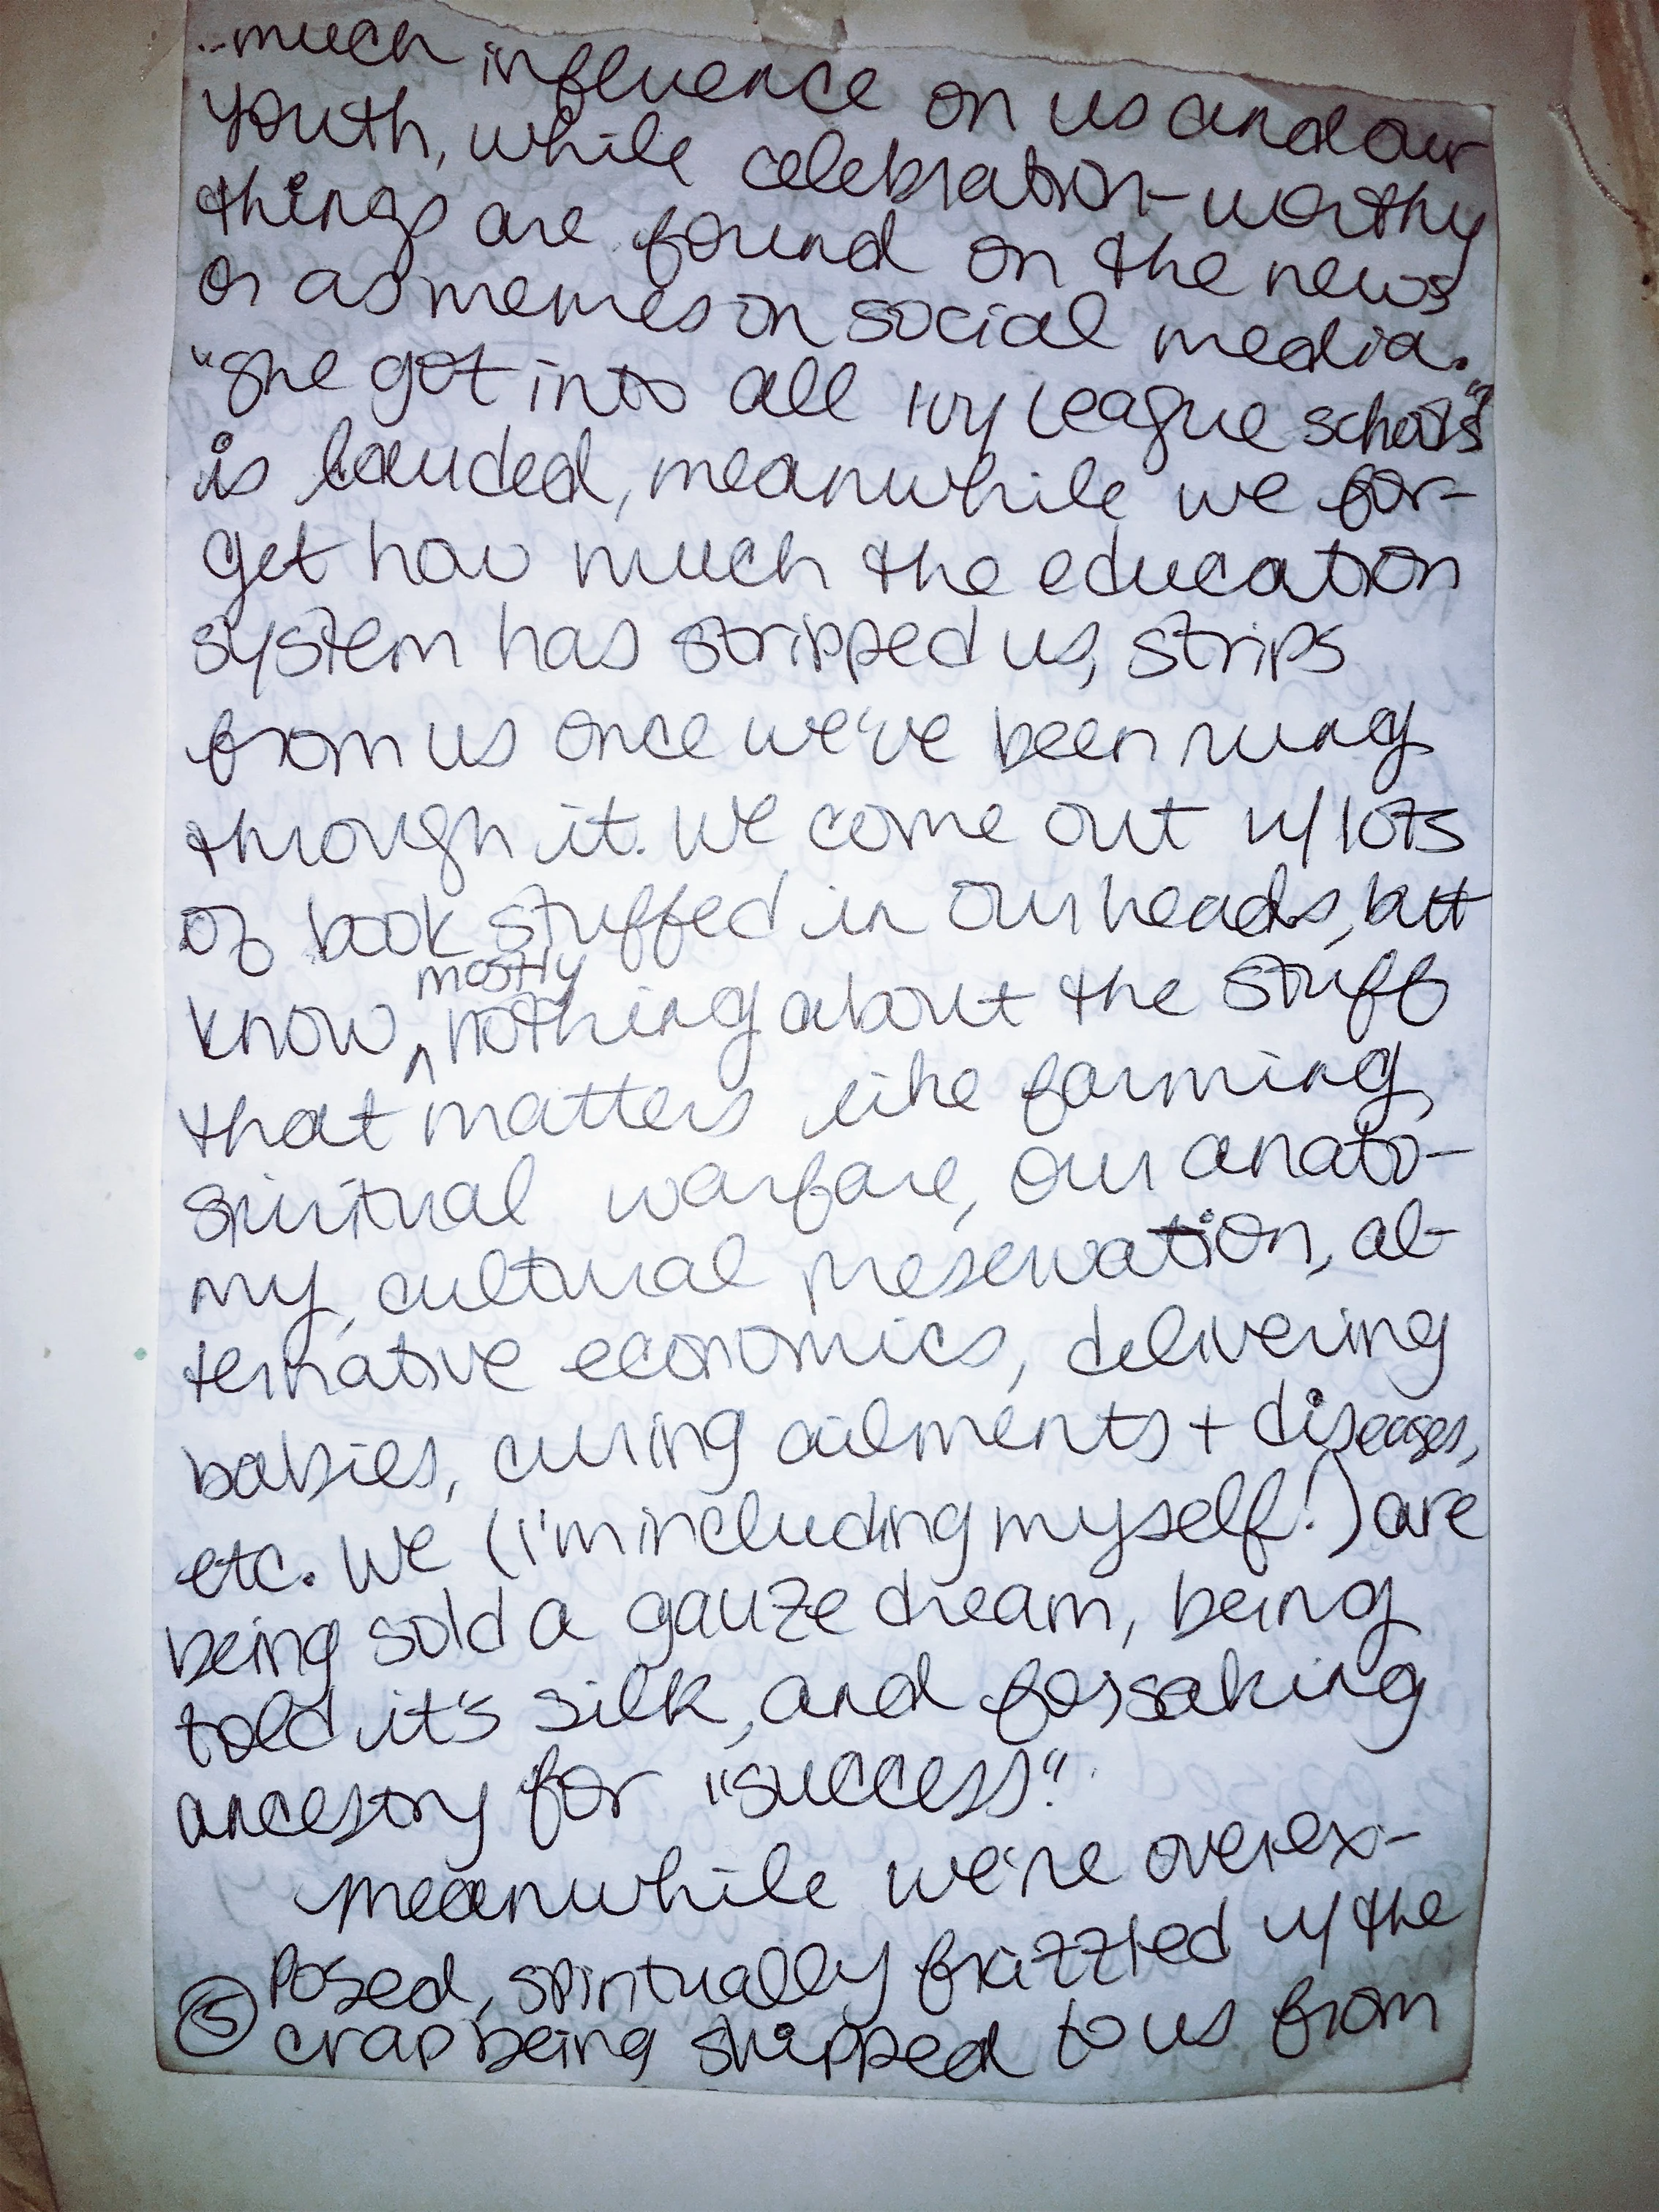 ..much influence on us and our
youth, while celebration-worthy
things are found on the news
or as memes on social media.
"She got into all Ivy League schools"
is lauded, meanwhile we for-
get how much the education
system has stripped us, strips
from us once we've been rung
through it. We come out w/ lots
of book stuffed in our heads, but
know ^ mostly nothing about the stuff
that matters like farming,
spiritual warfare, our anato-
my, cultural preservation, al-
ternative economics, delivering
babies, curing ailments + diseases,
etc. We (I'm including myself!) are
being sold a gauze dream, being
told it's silk, and forsaking
ancestry for "success".
Meanwhile we're overex-
posed, spiritually frizzled w/ the
⑤ crap being shipped to us from